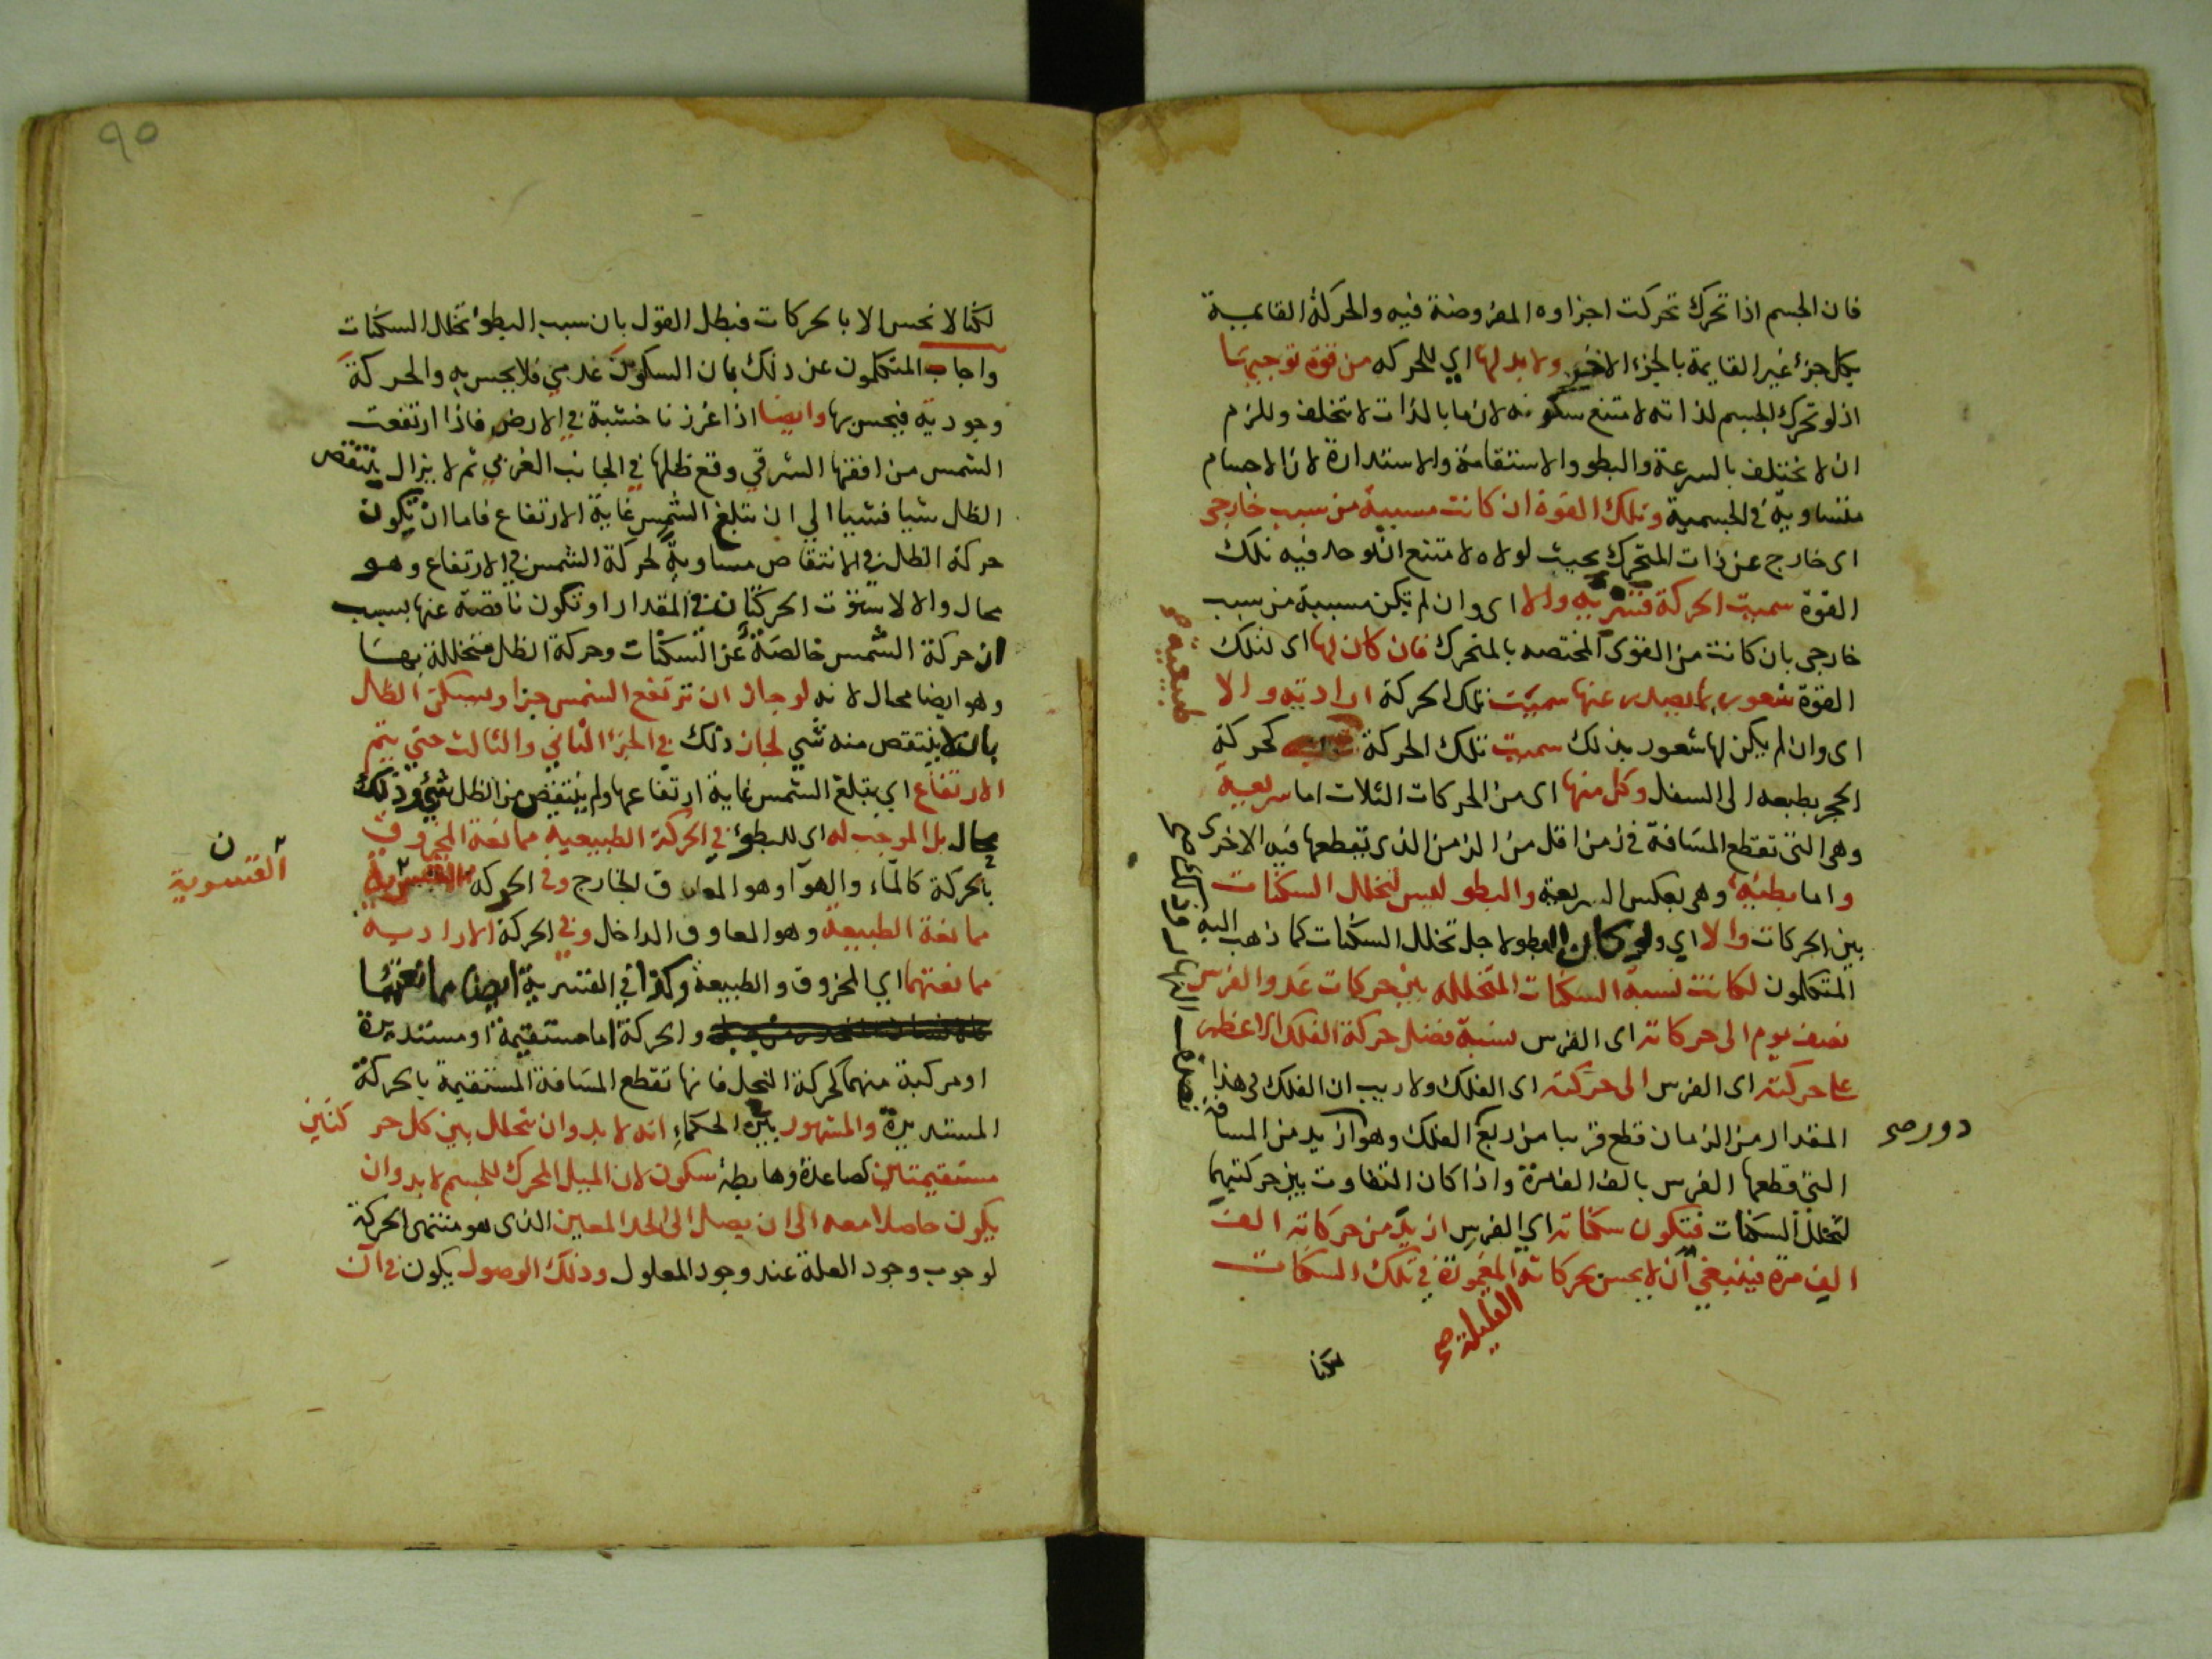 فان الجسم اذا تحرك تحركت اجزاوه المفروضة فيه والحركة القايمة
بكل جزء غير القايمة بالجزء الاخر ولا بد لها اي للحركه من قوة توجبها
اذ لو تحرك الجسم لذاته لامتنع سكونه لان ما بالذات لا يتخلف وللزم
ان لا تختلف بالسرعة والبطو والاستقامة والاستدارة لان الاجسام
متساوية في الجسمية وتلك القوة ان كانت مسببة من سبب خارجي
اى خارج عن ذات المتحرك بحيث لولاه لامتنع ان توجد فيه تلك
القوة سميت الحركة قسرية والا اى وان لم تكن مسببة من سبب
خارجى بان كانت من القوى المختصه بالمتحرك فان كان لها اى لتلك
القوة شعور بما يصدر عنها سميت تلك الحركة ارادية والا
طبيعية صح
اى وان لم يكن لها شعور بذلك سميت تلك الحركة كحركة
الحجر بطبعه الى السفل وكل منها اى من الحركات الثلاث اما سريعة
وهى التى تقطع المسافة فى زمن اقل من الزمن الذى تقطعها فيه الاخرى
واما بطيئة وهى بعكس السريعة والبطو ليس لتخلل السكنات
بين الحركات والا اي ولو كان البطو لاجل تخلل السكنات كما ذهب اليه
المتكلمون لكانت نسبة السكنات المتخلله بين حركات عدو الفرس
نصف يوم الى حركاته اى الفرس كنسبة فضل حركة الفلك الاعظم
على حركته اى الفرس الى حركته اى الفلك ولا ريب ان الفلك فى هذا
المقدار من الزمان قطع قريبا من ربع الفلك وهو ازيد من المسافة
دور صح
التي قطعها الفرس بالف الف مرة واذا كان التفاوت بين حركتيهما
لتخلل السكنات فتكون سكناته اي الفرس ازيد من حركاته الف
الف مرة فينبغي ان لا يحس بحركاته المغمورة في تلك السكنات
القليلة صح
لكنا
٩٥
لكنا لا نحس الا بالحركات فبطل القول بان سبب البطو تخلل السكنات
واجاب المتكلمون عن ذلك بان السكون عدمي فلا يحس به والحركة
وجودية فيحس بها وايضا اذا غرزنا خشبة في الارض فاذا ارتفعت
الشمس من افقها الشرقي وقع ظلها في الجانب الغربي ثم لا يزال ينتقص
الظل شيا فشيا الي ان تبلغ الشمس غاية الارتفاع فاما ان تكون
حركة الظل في الانتقاص مساوية لحركة الشمس في الارتفاع وهو
محال والا لاستوت الحركتان في المقدار او تكون ناقصة عنها بسبب
ان حركة الشمس خالصة عن السكنات وحركة الظل متخللة بها
وهو ايضا محال لانه لو جاز ان ترتفع الشمس جزا ويسكن الظل
بان لا ينتقص منه شي لجاز ذلك في الجزء الثاني والثالث حتي يتم
الارتفاع اي تبلغ الشمس غاية ارتفاعها ولم ينتقص من الظل شيء وذلك
محال بل الموجب له اى للبطو في الحركة الطبيعية ممانعة المخروق
بالحركة كالماء والهوآ وهو المعاوق الخارج وفي الحركة القسرية
القسرية ن
ممانعة الطبيعة وهو المعاوق الداخل وفي الحركة الارادية
ممانعتهما اي المخروق والطبيعة وكذا في القسرية ايضا ممانعتهما
والحركة اما مستقيمة او مستديرة
او مركبة منهما كحركة العجل فانها تقطع المسافة المستقيمة بالحركة
المستديرة والمشهور بين الحكماء انه لا بد وان يتخلل بين كل حركتين
مستقيمتين كصاعدة وهابطة سكون لان الميل المحرك للجسم لا بد وان
يكون حاصلا معه الى ان يصل الى الحد المعين الذى هو منتهى الحركة
لوجوب وجود العلة عند وجود المعلول وذلك الوصول يكون في آن